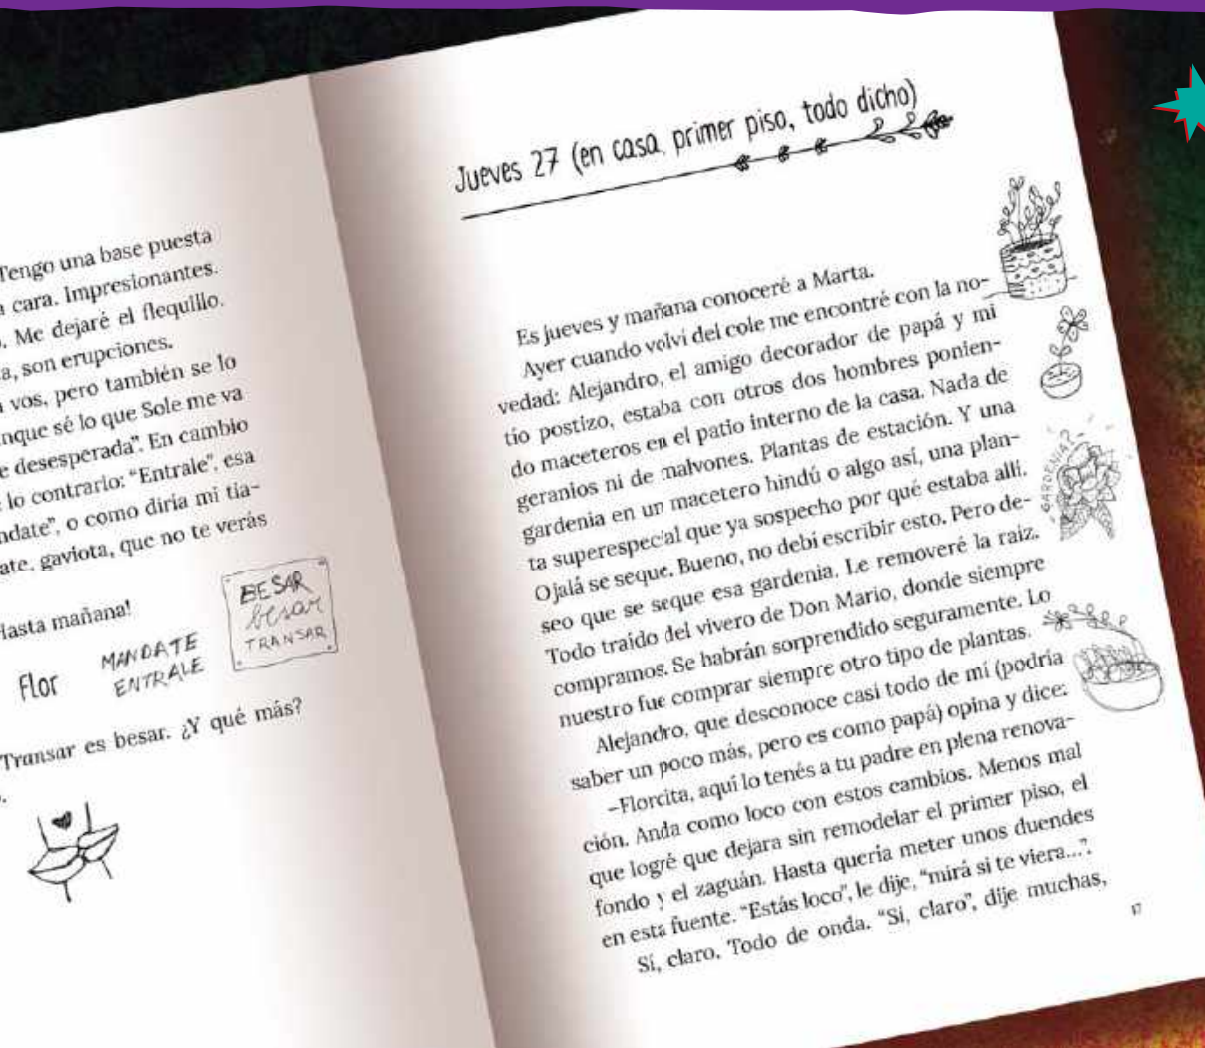 Tengo una base puesta
cara. Impresionantes.
Me dejaré el flequillo.
son erupciones.
vos, pero también se lo
sé lo que Sole me va
desesperada". En cambio
lo contrario: "Entrale", esa
o como diría mi tía-
gaviota, que no te verás
mañana!
Flor
MANDATE
ENTRALE
BESAR
besar
TRANSAR
Transar es besar. ¿Y qué más?
Jueves 27 (en casa, primer piso, todo dicho)
Es jueves y mañana conoceré a Marta.
Ayer cuando volví del cole me encontré con la no-
vedad: Alejandro, el amigo decorador de papá y mi
tío postizo, estaba con otros dos hombres ponien-
do maceteros en el patio interno de la casa. Nada de
geranios ni de malvones. Plantas de estación. Y una
gardenia en un macetero hindú o algo así, una plan-
ta superespecial que ya sospecho por qué estaba allí.
Ojalá se seque. Bueno, no debí escribir esto. Pero de-
seo que se seque esa gardenia. Le removeré la raíz.
Todo traído del vivero de Don Mario, donde siempre
compramos. Se habrán sorprendido seguramente. Lo
nuestro fue comprar siempre otro tipo de plantas.
Alejandro, que desconoce casi todo de mí (podría
saber un poco más, pero es como papá) opina y dice:
–Florcita, aquí lo tenés a tu padre en plena renova-
ción. Anda como loco con estos cambios. Menos mal
que logré que dejara sin remodelar el primer piso, el
fondo y el zaguán. Hasta quería meter unos duendes
en esta fuente. "Estás loco", le dije, "mirá si te viera...".
Sí, claro. Todo de onda. "Sí, claro", dije muchas,
GARDENIA?
17